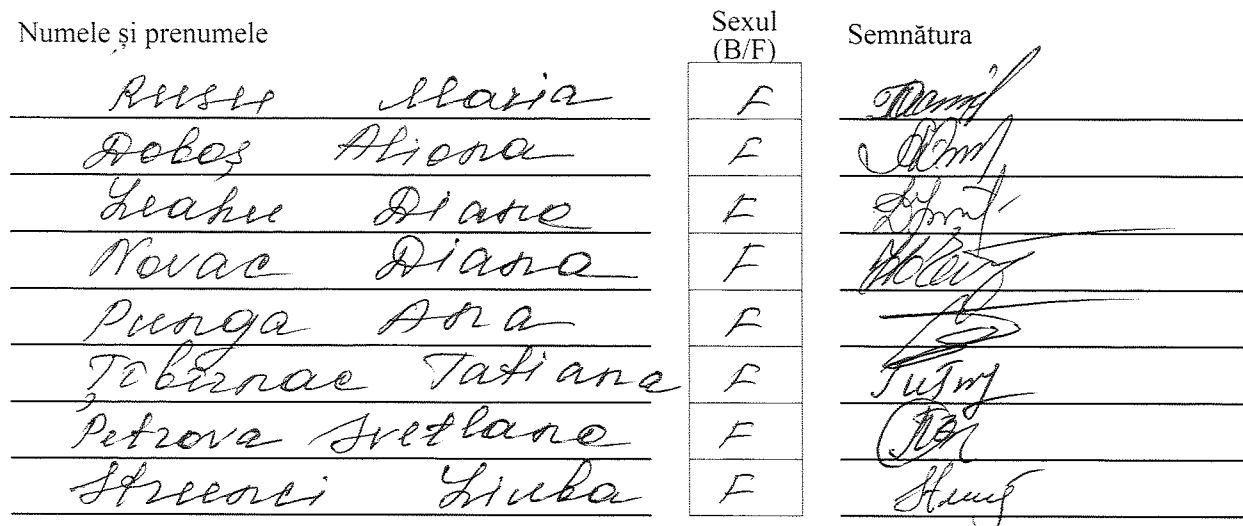 Numele și prenumele Sexul (B/F) Semnătura
Rusu Maria F
Doboș Aliona F
Leahu Diana F
Novac Diana F
Punga Ana F
Țibîrnac Tatiana F
Petrova Svetlana F
Struci Liuba F